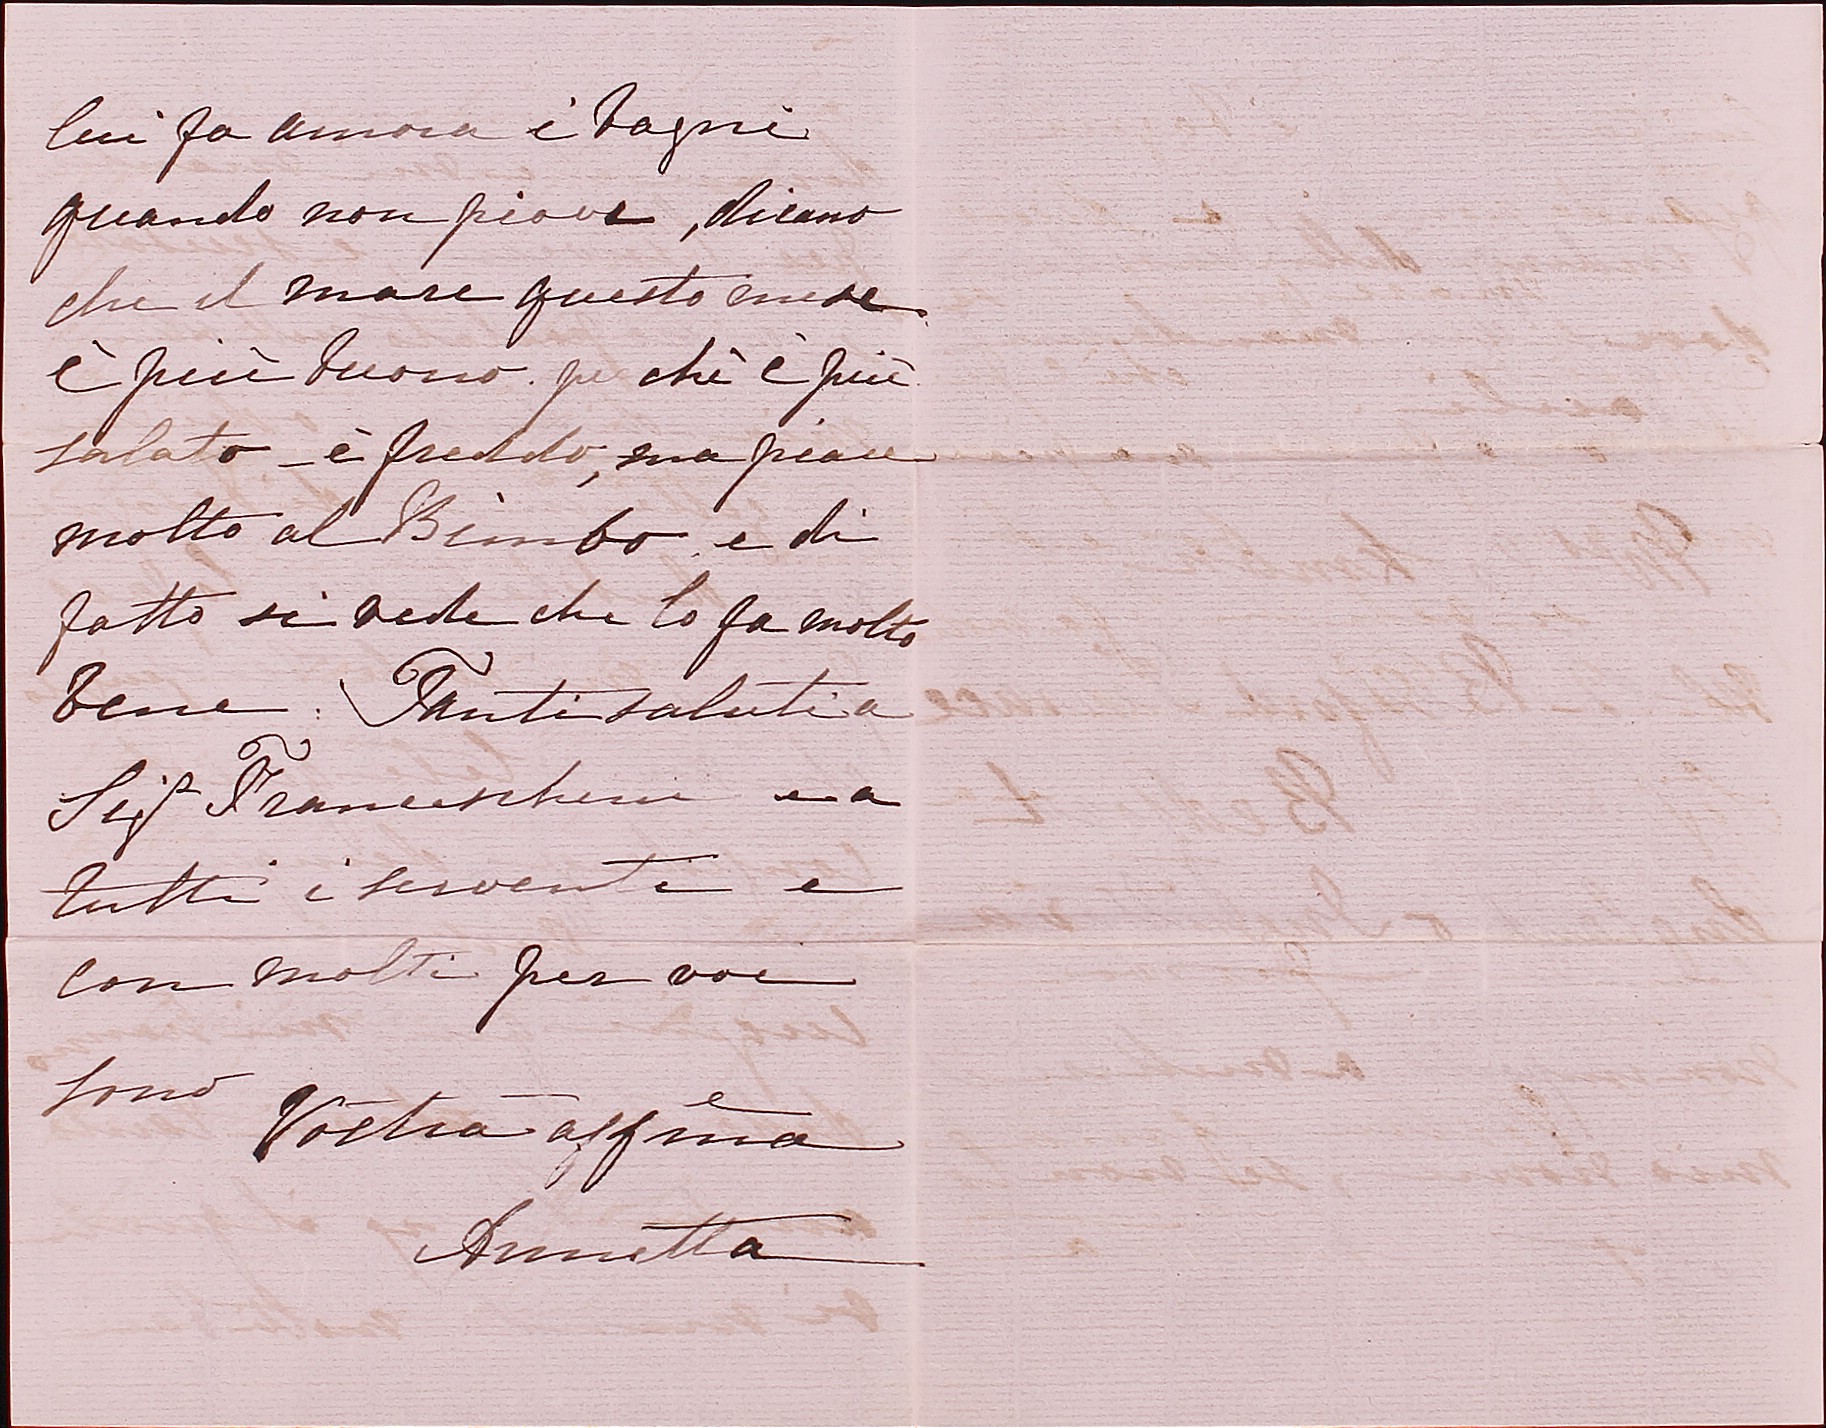 lui fa ancora i bagni
quando non piove, dicano
che il mare questo mese
è più buono perchè è più
salato - è freddo, ma piace
molto al Bimbo e di
fatto si vede che lo fa molto
bene. Tanti saluti a
Sigr Franceschini e a
tutti i serventi e
con molti per voi
sono
Vostra affma
Annetta